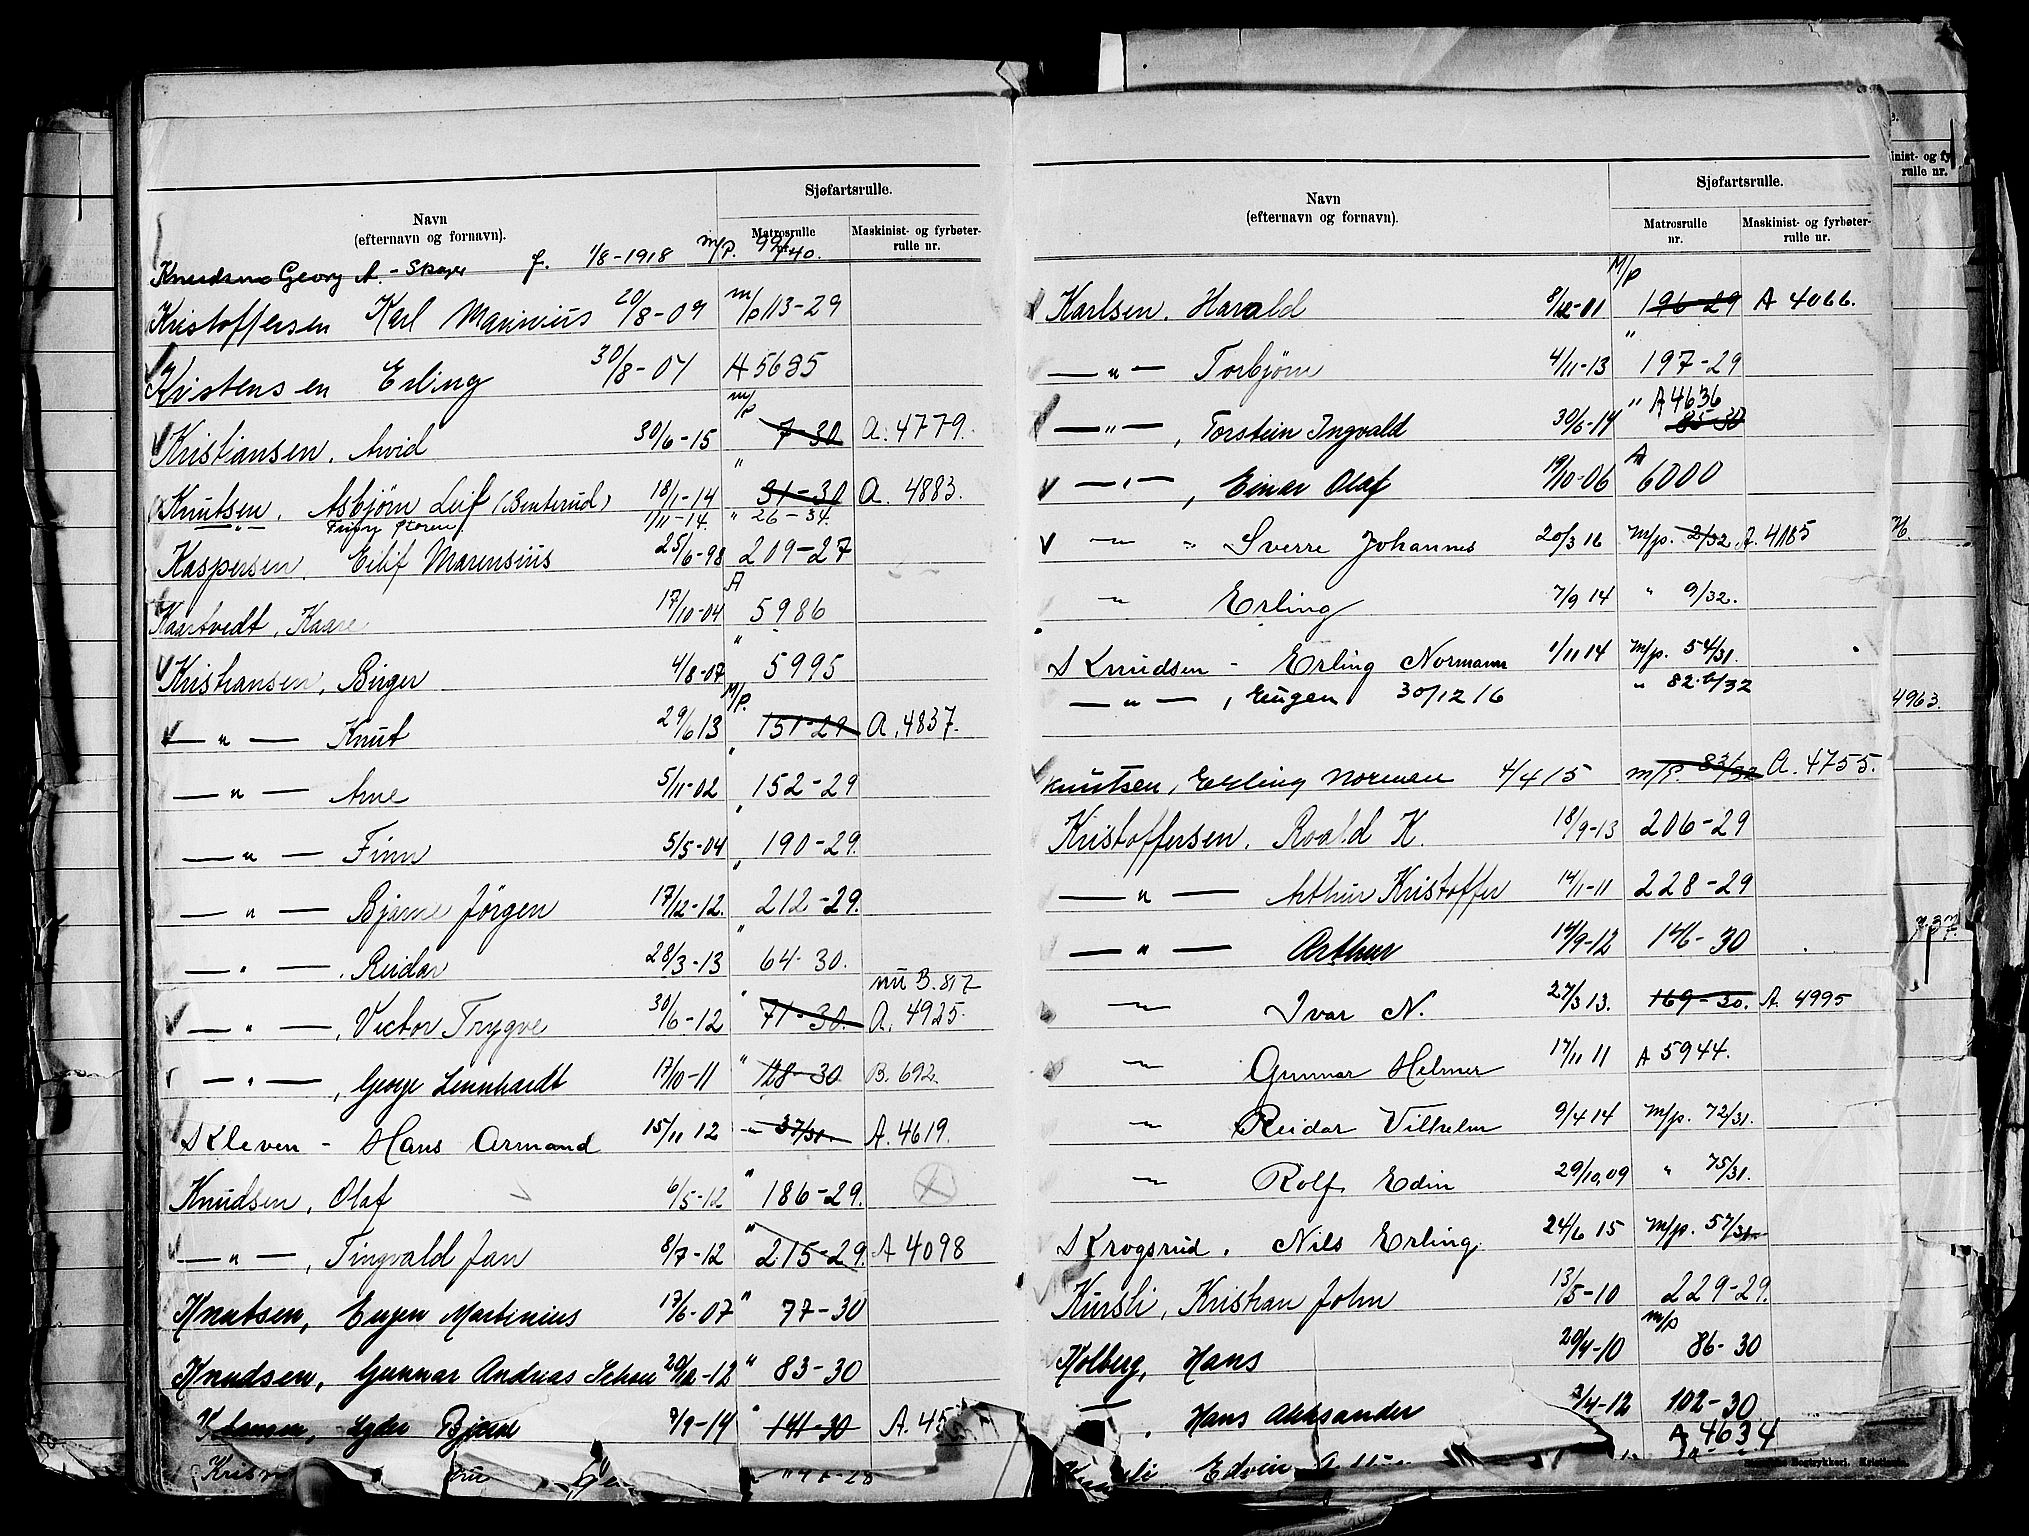 Sjøfartsrulle.
Navn
(efternavn og fornavn).
Matrosrulle
Maskinist- og fyrbøter-
rulle nr.
Knudsen Georg A. - Skage f. 1/8-1918 M/P. 99/40.
Kristoffersen Karl Marinius 20/8-09 m/p 113-29
Kristensen Erling 30/8-04 A 5685
Kristiansen, Arvid 30/6-15 m/p 7-30 A. 4779.
Knutsen, Asbjørn Leif (Benterud) 18/1-14 " 31-30 A. 4883.
— " — 1/11-14. " 26-34.
Kaspersen, Eilif Marensius 25/6-98 209-27
Kaartvedt, Kaare 17/10-04 A 5986
Kristiansen, Birger 4/8-07 " 5995
— " — Knut 29/6 13 M/P. 151-29 A. 4837.
— " — Arne 5/11-02 " 152-29
— " — Finn 5/5-04 " 190-29.
— " — Bjarne Jörgen 17/12-12. " 212-29.
— " —, Reidar 28/3-13 " 64-30.
nu B. 817
— " —, Victor Trygve 30/6-12 " 71-30. A. 4925.
— " —, George Lennhardt 17/10-11 " 128-30 B. 692.
Kleven - Hans Armand 15/11 12 " 37/31. A. 4619.
Knudsen, Olaf 6/5-12 " 186-29.
— " —, Tingvald Jan 8/7-12 " 215-29. A 4098
Knutsen, Eugen Martinius 17/6-07 " 77-30
Knudsen, Gunnar Andreas Schou 20/12-12 " 83-30
Bjarne 7/9-14 " 141-30 A. 45
Sjøfartsrulle.
Navn
(efternavn og fornavn).
Matrosrulle
nr.
Maskinist- og fyrbøter-
rulle nr.
Karlsen, Harald 8/12-01 M/p 196-29 A 4066.
— " — Torbjørn 4/11-13 " 197-29
— " —, Torstein Ingvald 30/6-14 " A 4636 85-30
— " —, Einar Olaf 19/10-06 A 6000
— " Sverre Johannes 20/3 16 M/p. 2/32 A. 4185
— Erling 7/9 14 " 9/32.
Knudsen - Erling Normann 1/11 14 M/p. 54/31.
— " —, Eugen 30/12 16 " 82/32
Knutsen, Erling Norman 4/4 15 m/p. 83/32 A. 4755.
Kristoffersen, Roald K. 18/9-13 206-29
— " — Arthur Kristoffer 14/1-11 228-29
— " — Arthur 14/9-12 146-30
— Ivar N. 27/3 13. 169-30. A. 4995
— Gunnar Helmer 17/11 11 A 5944.
— Reidar Vilhelm 9/4 14 M/p. 72/31.
— Rolf Edin 29/10,09 " 75/31.
Krogsrud, Nils Erling 24/6 15 M/p. 57/31
Kursli, Kristian John 13/5-10 229-29.
Kolberg, Hans 20/4-10 m/p 86-30
—, Hans Aleksander 3/4-12 102-30
Edvin A 4634
Bogtrykkeri. Kristiania.
inist- og fy
rulle nr.
4963.